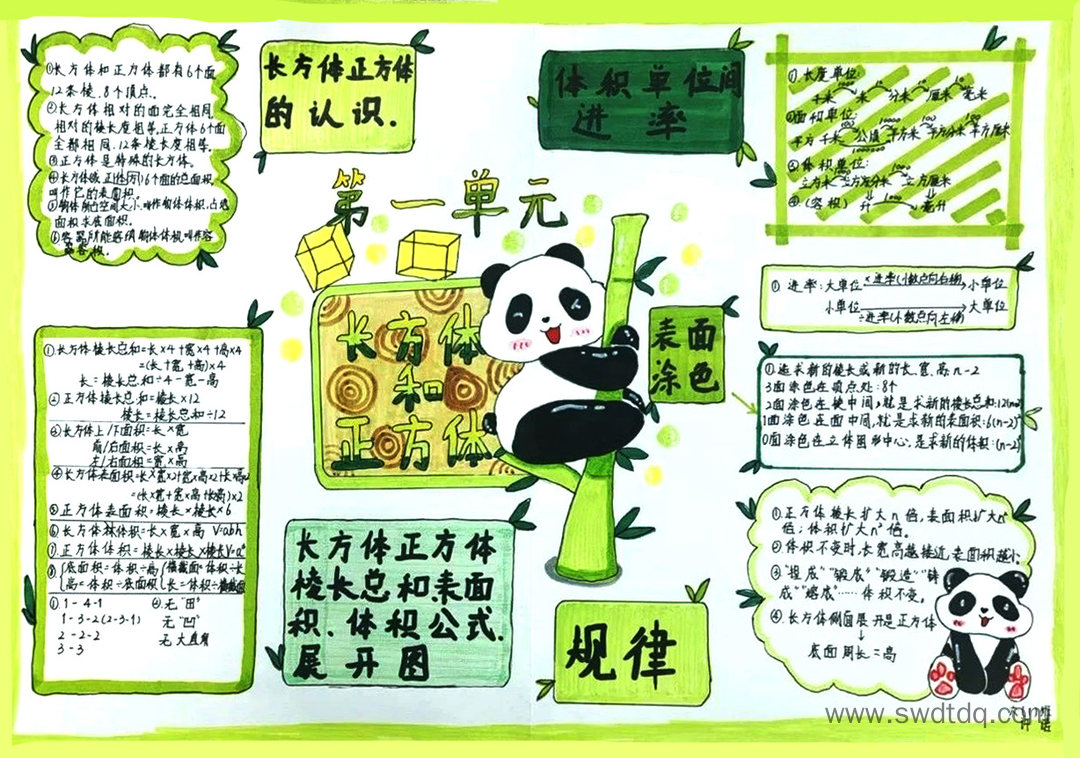 ①长方体和正方体都有6个面
12条棱、8个顶点。
②长方体相对的面完全相同
相对的棱长度相等,正方体6个面
全都相同,12条棱长度相等。
③正方体是特殊的长方体。
④长方体或正体(厉)6个面的总面积
叫作它的表面积。
⑤物体所占空间大小,叫作物体体积,占地
面积求底面积。
⑥容器所能容纳物体体积叫作容
器容积。
长方体正方体
的认识.
体积单位间
进率
①长度单位:
千米 米 10 分米 10 厘米 10 毫米
②面积单位:
平方千米 100 公顷 10000 平方米 100 平方分米 100 平方厘米
1000000
③体积单位:
立方米 1000 立方分米 1000 立方厘米
④(容积) 升 1000 毫升
第一单元
长方体
和
正方体
表面
涂色
①进率:大单位 ×进率(小数点向右移) 小单位
小单位 大单位
÷进率(小数点向左移)
①长方体棱长总和=长×4+宽×4+高×4
=(长+宽+高)×4
长=棱长总和÷4-宽-高
②正方体棱长总和=棱长×12
棱长=棱长总和÷12
③长方体上/下面积=长×宽
前/后面积=长×高
左/右面积=宽×高
④长方体表面积=长×宽×2+宽×高×2+长×高×2
=(长×宽+宽×高+长×高)×2
⑤正方体表面积=棱长×棱长×6
⑥长方体体积=长×宽×高 V=abh
⑦正方体体积=棱长×棱长×棱长V=a³
⑧底面积=体积÷高 横截面=体积÷长
高=体积÷底面积 长=体积÷横截面
①1-4-1 ②无"田"
1-3-2(2-3-1) 无"凹"
2-2-2 无大直角
3-3
①追求新的棱长或新的长、宽、高n-2
3面涂色在顶点处:8个
2面涂色在棱中间,就是求新的棱长总和:12(n-2)
1面涂色在面中间,就是求新的表面积:6(n-2)²
0面涂色在立体图形中心,是求新的体积:(n-2)³
长方体正方体
棱长总和表面
积、体积公式.
展开图
规律
①正方体棱长扩大n倍,表面积扩大n²
倍;体积扩大n³倍。
②体积不变时,长宽高越接近,表面积越小
③"捏成""锻成""锻造""铸
成""熔成"……体积不变。
④长方体侧面展开是正方体
↓
底面周长=高
www.swdtdq.com